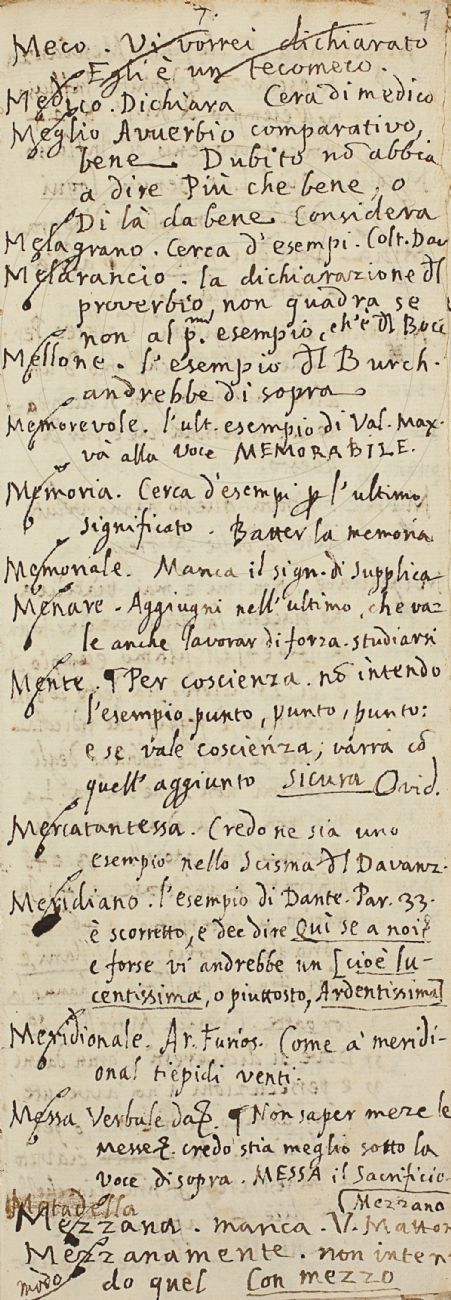 7. 7
Meco. Vi vorrei dichiarato
Egli è un tecomeco.
Medico. Dichiara Cera di medico
Meglio Avverbio comparativo,
bene. Dubito nõ abbia
a dire Più che bene, o
Di là da bene. Considera
Melagrano. Cerca d'esempi. Colt. Dav
Melarancio. la dichiarazione dl
proverbio, non quadra se
non al pº. esempio, ch'è dl Bocc
Mellone. l'esempio dl Burch.
andrebbe di sopra
Memorevole. l'ult. esempio di Val. Max.
và alla voce MEMORABILE.
Memoria. Cerca d'esempi p l'ultimo
significato. Batter la memoria
Memoriale. Manca il sign. di Supplica
Menare. Aggiugni nell'ultimo, che va=
le anche lavorar di forza. studiarsi
Mente. ¶ Per coscienza. nõ intendo
l'esempio. punto, punto, punto:
e se vale coscienza; varrà cõ
quell' aggiunto Sicura Ovid.
Mercatantessa. Credo ne sia uno
esempio nello Scisma dl Davanz.
Meridiano. l'esempio di Dante. Par. 33.
è scorretto, e dee dire Quì se a noi
e forse vi andrebbe un [cioè lu-
centissima, o piuttosto, Ardentissima]
Meridionale. Ar. Furios. Come a' meridi-
onal tiepidi venti.
Messa Verbale da ¶ Non saper mezze le
messe. credo stia meglio sotto la
voce di sopra. MESSA il Sacrificio.
Matadella Mezzano
Mezzana. manca. V. Matton
Mezzanamente. non inten
do quel Con mezzo
modo